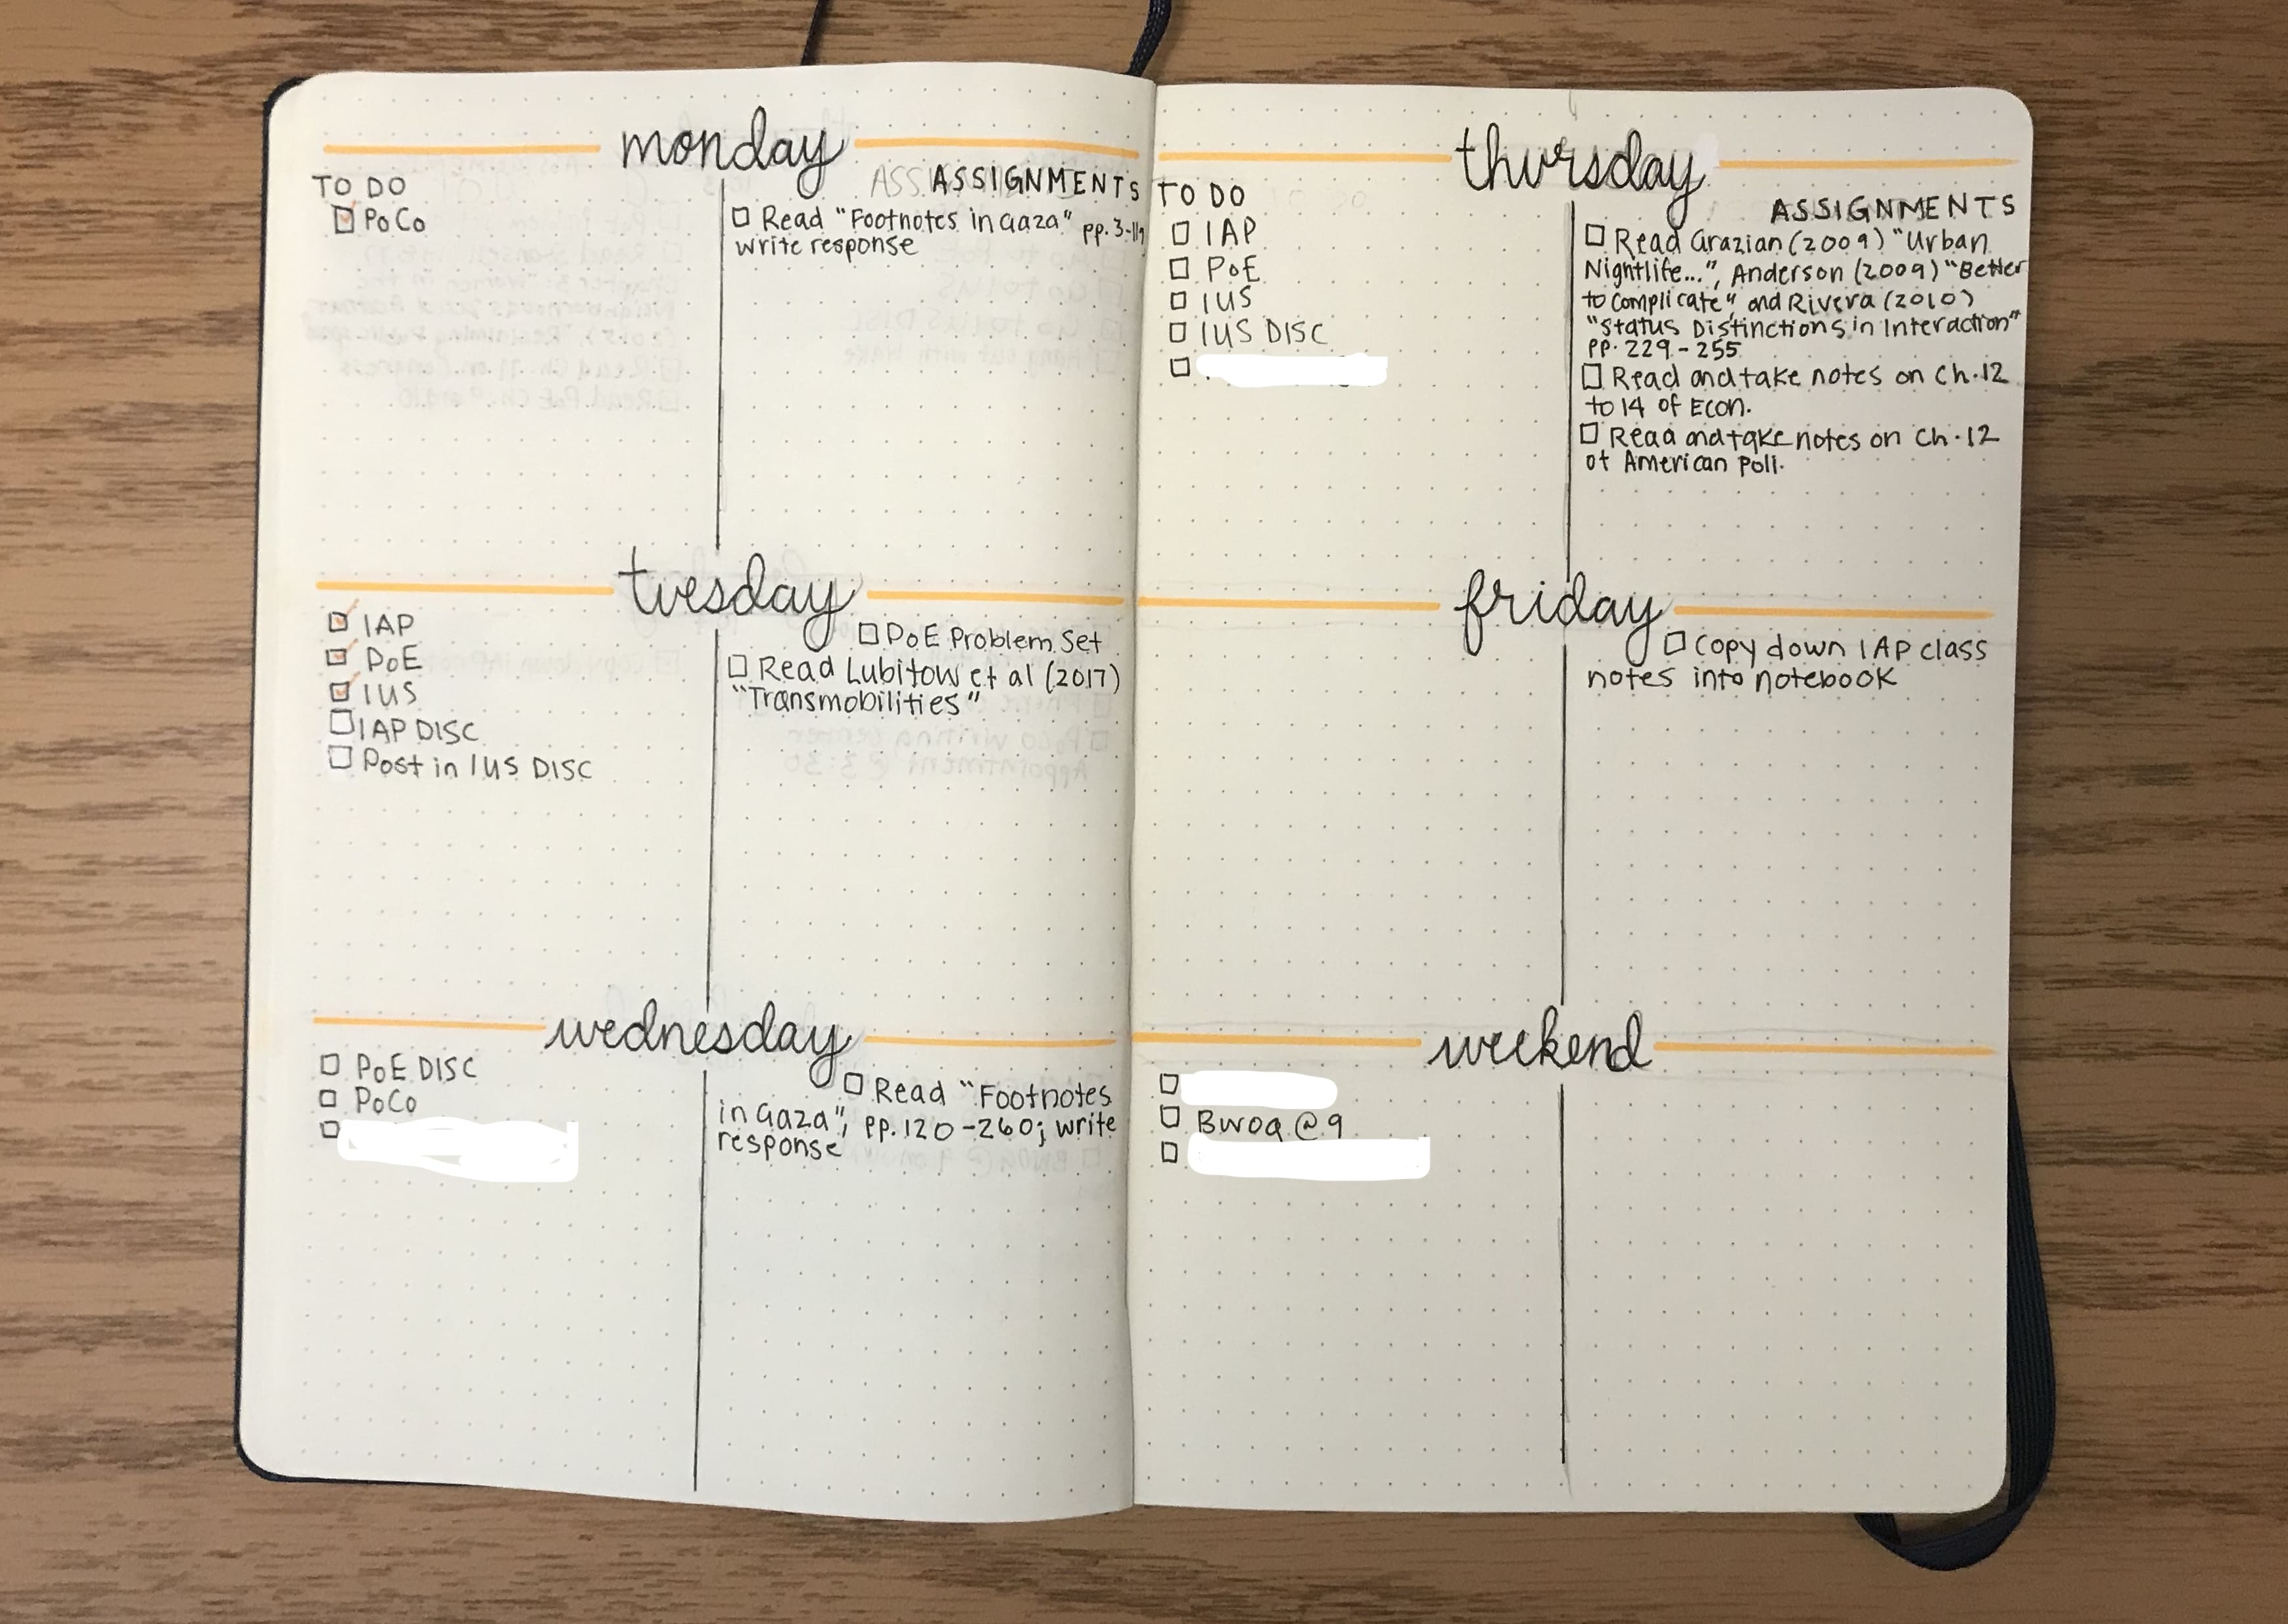 monday
TO DO
PoCo
ASSIGNMENTS
Read "Footnotes in Gaza" pp. 3-119
write response
tuesday
IAP
PoE
IUS
IAP DISC
Post in IUS DISC
PoE Problem Set
Read Lubitow et al (2017)
"Transmobilities"
wednesday
PoE DISC
PoCo
Read "Footnotes
in Gaza", pp. 120-260; write
response
thursday
TO DO
IAP
PoE
IUS
IUS DISC
ASSIGNMENTS
Read Grazian (2009) "Urban
Nightlife...", Anderson (2009) "Better
to Complicate", and Rivera (2010)
"Status Distinctions in Interaction"
pp. 229-255
Read and take notes on Ch. 12
to 14 of Econ.
Read and take notes on Ch. 12
of American Poli.
friday
Copy down IAP class
notes into notebook
weekend
Bwog @ 9